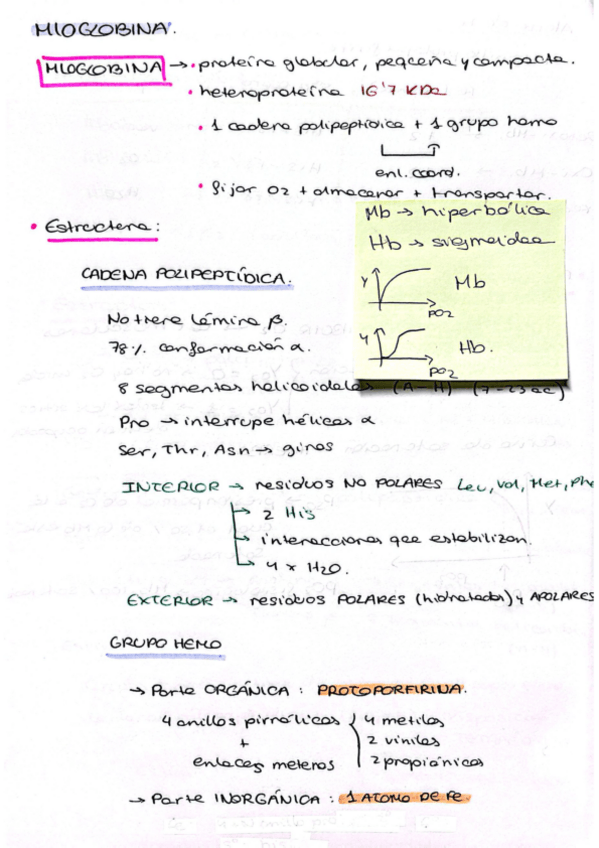 MIOGLOBINA.
MIOGLOBINA → • proteína globular, pequeña y compacta.
• heteroproteína 16'7 KDa
• 1 cadena polipeptídica + 1 grupo hemo
enl. coord.
• fijar O2 + almacenar + transportar.
Mb → hiperbólica
Hb → sigmoidea
Y Mb
PO2
Y Hb.
PO2
• Estructura:
CADENA POLIPEPTÍDICA.
No tiene lámina β.
78% conformación α.
8 segmentos helicoidales (A-H) (7-23 aa)
Pro → interrupe hélices α
Ser, Thr, Asn → giros
INTERIOR → residuos NO POLARES Leu, Val, Met, Phe
→ 2 His
→ interacciones que estabilizan.
→ 4 x H2O.
EXTERIOR → residuos POLARES (hidratada) y APOLARES
GRUPO HEMO
→ Parte ORGÁNICA : PROTOPORFIRINA.
4 anillos pirrólicos { 4 metilos
+ 2 vinilos
enlaces metenos 2 propiónicos
→ Parte INORGÁNICA : 1 ATOMO DE Fe.